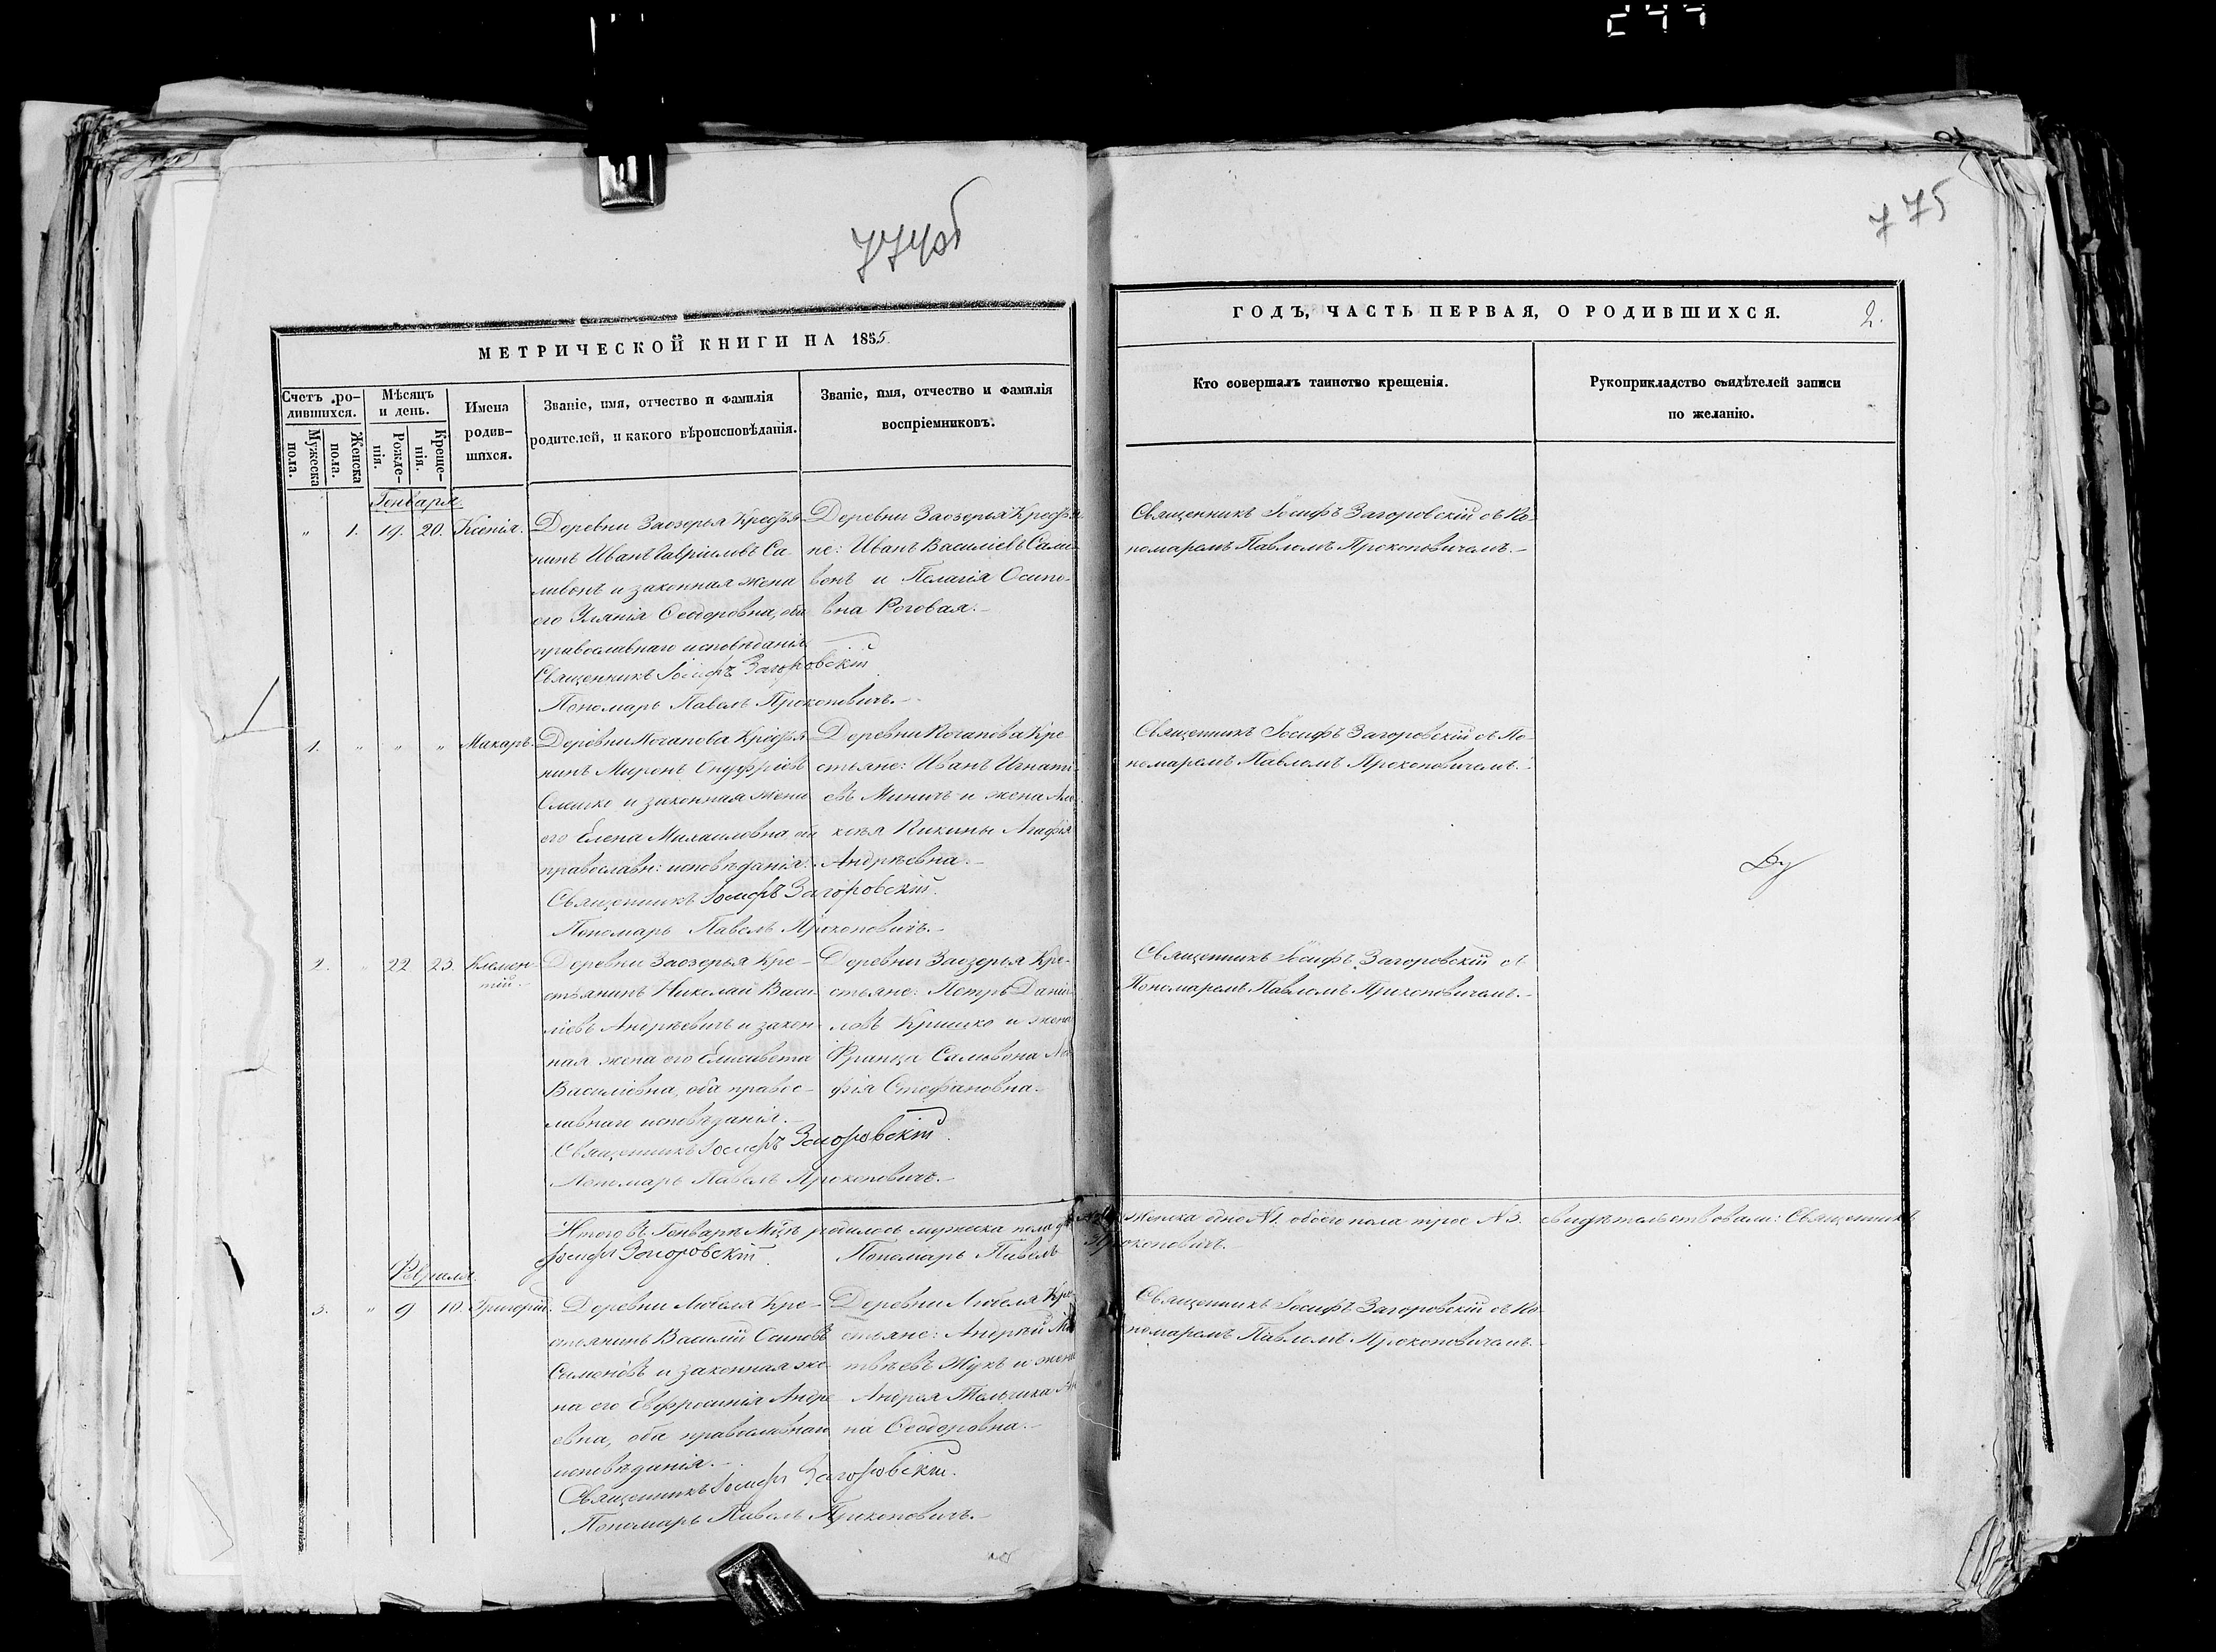 774об
775
МЕТРИЧЕСКОЙ КНИГИ НА 1855
ГОДЪ, ЧАСТЬ ПЕРВАЯ, О РОДИВШИХСЯ.
2.
Счетъ ро-
дившихся.
Мужеска
пола.
Женска
пола.
Мѣсяцъ
и день.
Рожде-
нія.
Креще-
нія.
Имена
родив-
шихся.
Званіе, имя, отчество и фамилія
родителей, и какого вѣроисповѣданія.
Званіе, имя, отчество и фамилія
воспріемниковъ.
Кто совершалъ таинство крещенія.
Рукоприкладство свидѣтелей записи
по желанію.
Генваря.
" 1. 19. 20. Ксенія.
Деревни Заозерья Крестья-
нинъ Иванъ Гавріиловъ Са-
ливонъ и законная жена
его Уляния Ѳеодоровна, оба
православнаго исповѣданія
Священникъ Іосифъ Загоровскій
Пономарь Павелъ Прокоповичъ.
Деревни Заозерья Крестья-
не: Иванъ Василіевъ Сали-
вонъ и Пелагія Осипо-
вна Роговая.
Священникъ Іосифъ Загоровскій съ По-
номаремъ Павломъ Прокоповичемъ.
1. " " " Макаръ.
Деревни Почапова Крестья-
нинъ Миронъ Онуфріевъ
и законная жена
его Елена Михаиловна, оба
православн: исповѣданія.
Священникъ Іосифъ Загоровскій.
Пономарь Павелъ Прокоповичъ.
Деревни Почапова Кре-
стьяне: Иванъ Игнатi-
евъ Миничъ и жена Але-
ксѣя Кикины Агафія
Андрѣевна.
Священникъ Іосифъ Загоровскій съ По-
номаремъ Павломъ Прокоповичемъ.
2. " 22 23. Климен-
тій.
Деревни Заозерья Кре-
стьянинъ Николай Васи-
ліевъ Андрѣевичъ и закон-
ная жена его Елисавета
Василіевна, оба правос-
лавнаго исповѣданія.
Священникъ Іосифъ Загоровскій.
Пономарь Павелъ Прокоповичъ.
Деревни Заозерья Кре-
стьяне: Петръ Даніи-
ловъ Кришко и жена
Франца Саливона
Стефановна.
Священникъ Іосифъ Загоровскій съ
Пономаремъ Павломъ Прокоповичемъ.
Итого въ Генварѣ М-цѣ родилось мужеска пола женска одно №1. обоего пола трое №3. свидѣтельствовали: Священникъ
Іосифъ Загоровскій. Пономарь Павелъ Прокоповичъ.
Февраля.
3. " 9 10. Григорій.
Деревни Любеля Кре-
стьянинъ Василій Осиповъ
Семеновъ и законная же-
на его Евфросинія Андре-
евна, оба православнаго
исповѣданія.
Священникъ Іосифъ Загоровскій.
Пономарь Павелъ Прокоповичъ.
Деревни Любеля Кре-
стьяне: Андрей Ма-
твѣевъ Жукъ и жена
Андрея Тельчика Ан-
на Ѳеодоровна.
Священникъ Іосифъ Загоровскій съ По-
номаремъ Павломъ Прокоповичемъ.